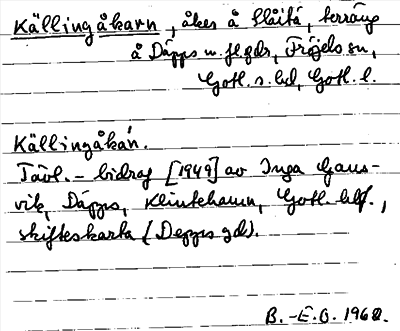 Källingåkarn, åker å slåítá, terräng
å Däpps m.fl. gdr, Fröjels sn,
Gotl. s. hd, Gotl. l.
Källingåkán.
Tävl.-bidrag [1949] av Inga Gans-
vik, Däpps, Klintehamn, Gotl. hlf.,
skifteskarta (Depps gd).
B.-E.O. 1960.